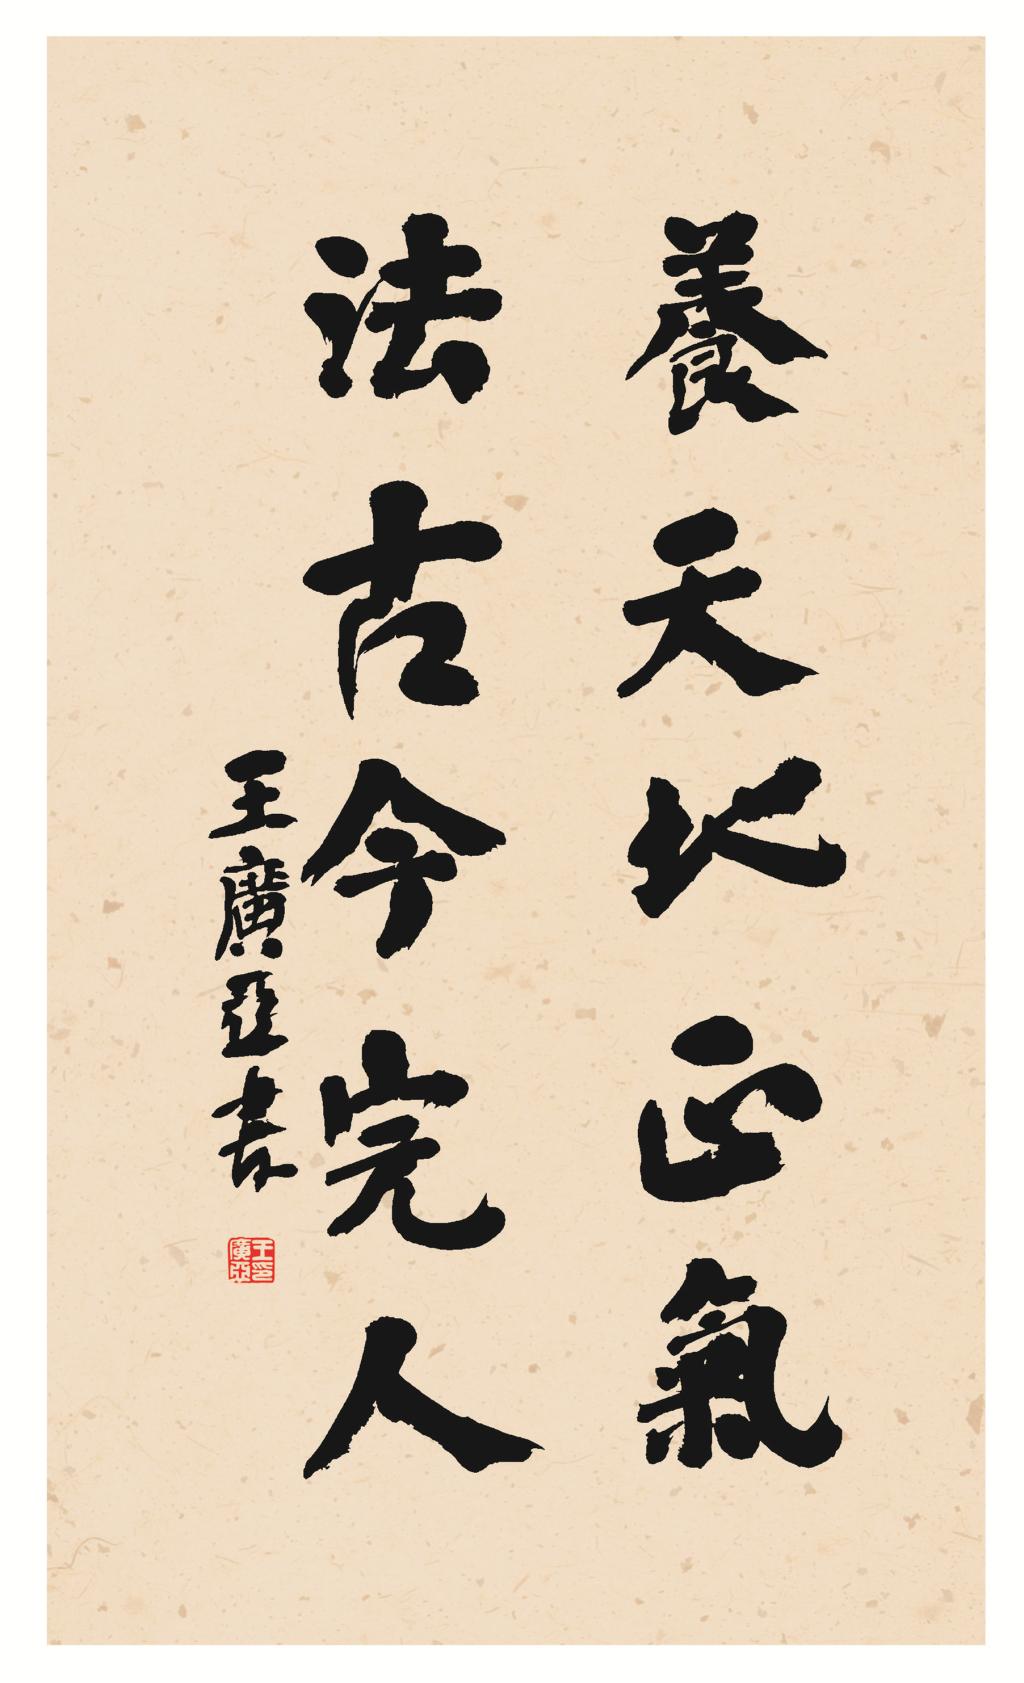 養天地正氣
法古今完人
王廣亞書
王印廣亞